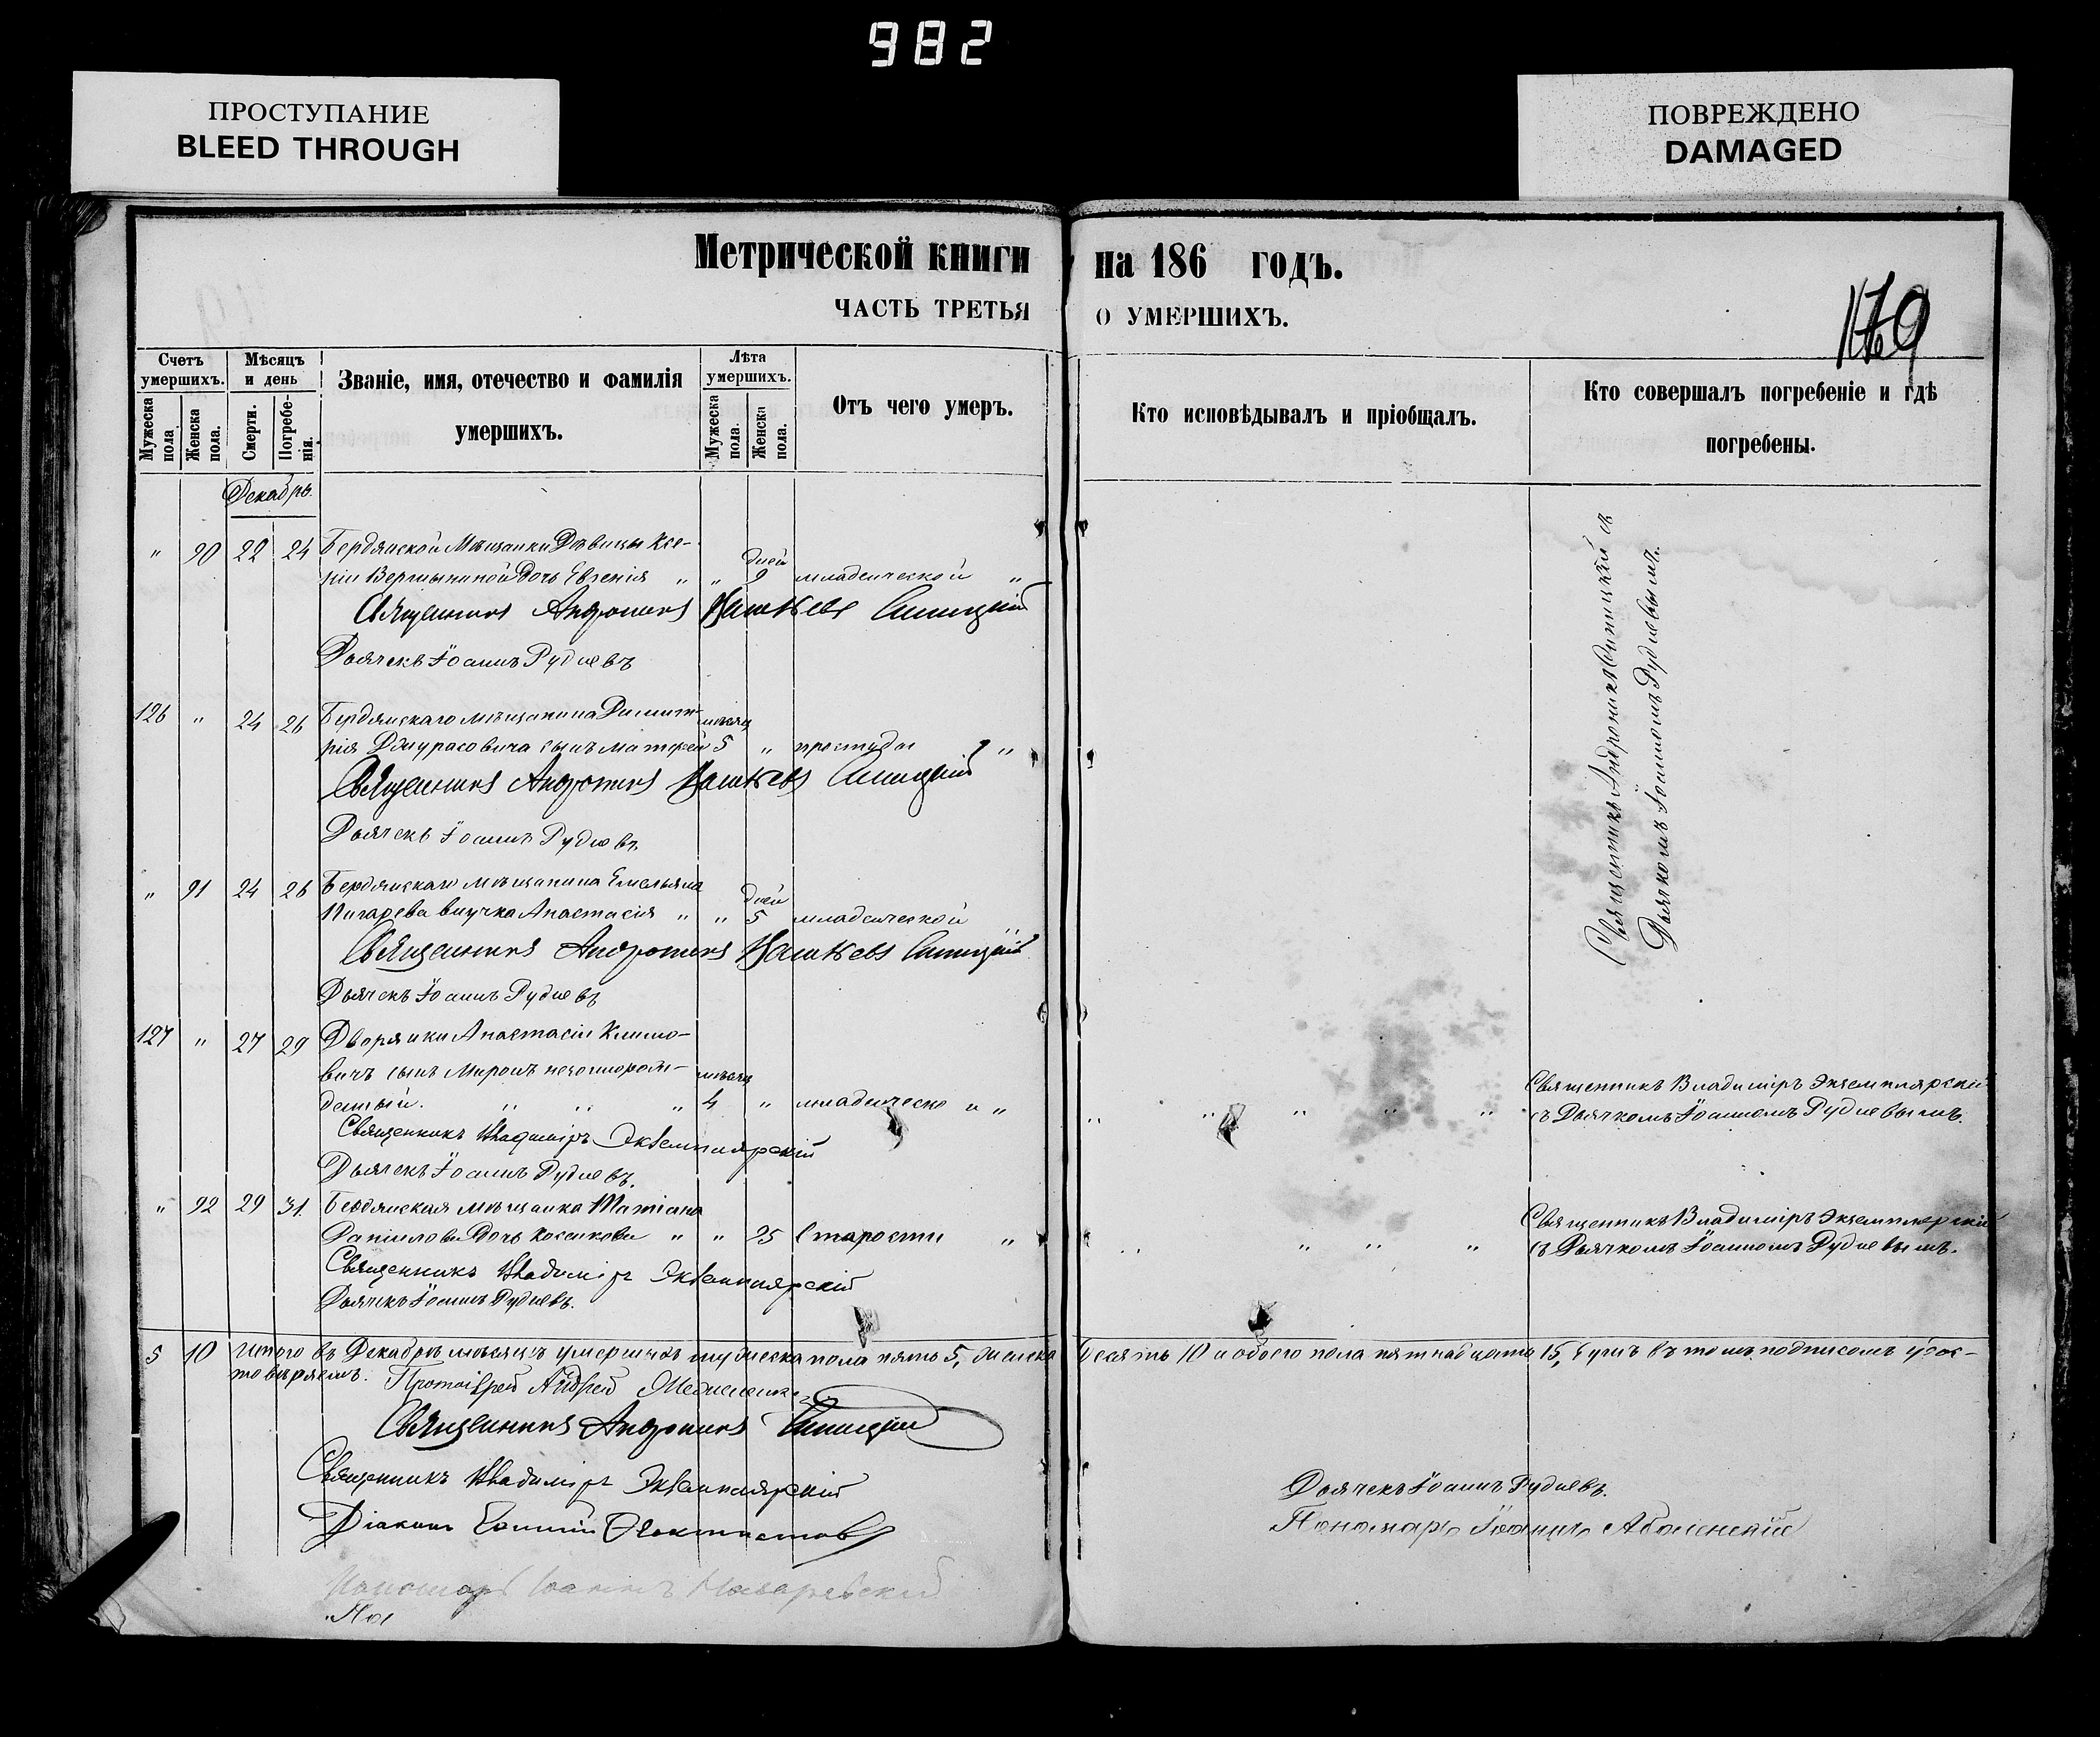 982
ПРОСТУПАНИЕ
BLEED THROUGH
ПОВРЕЖДЕНО
DAMAGED
Метрической книги на 186 годъ.
ЧАСТЬ ТРЕТЬЯ О УМЕРШИХЪ.
179
Счетъ умершихъ.
Мужеска пола
Женска пола.
Мѣсяцъ и день
Смерти.
Погребе-нія.
Званіе, имя, отечество и фамилія умершихъ.
Лѣта умершихъ.
Мужеска пола.
Женска пола.
Отъ чего умеръ.
Кто исповѣдывалъ и пріобщалъ.
Кто совершалъ погребеніе и гдѣ погребены.
Декабрь.
" 90 22 24 Бердянской Мѣщанки Дѣвицы Ксе-
ніи Вершининой Дочь Евгенія " " дней 9 младенческой "
Священникъ Андроникъ Синицкій
Дьячекъ Іоаннъ Рудневъ
Священникъ Андроникъ Синицкій съ
Дьячкомъ Іоанномъ Рудневымъ.
126 " 24 26 Бердянскаго мѣщанина Димит-
рія сынъ Матфей мѣсяц 5 " простуды "
Священникъ Андроникъ Синицкій
Дьячекъ Іоаннъ Рудневъ
" 91 24 26 Бердянскаго мѣщанина Емельяна
Пигарева внучка Анастасія " " дней 5 младенческой
Священникъ Андроникъ Синицкій
Дьячекъ Іоаннъ Рудневъ
127 " 27 29 Дворянки Анастасіи Климо-
вичъ сынъ Миронъ незаконорож-
денный. " " " мѣсяц 4 " младенческой " " " " " " Священникъ Владиміръ Экземплярскій
съ Дьячкомъ Іоанномъ Рудневымъ.
Священникъ Владиміръ Экземплярскій
Дьячекъ Іоаннъ Рудневъ.
" 92 29 31. Бердянская мѣщанка Татіана
Даніилова Дочь Косенкова " " 95 Старости " " " " " Священникъ Владиміръ Экземплярскій
съ Дьячкомъ Іоанномъ Рудневымъ.
Священникъ Владиміръ Экземплярскій
Дьячекъ Іоаннъ Рудневъ.
5 10 Итого въ Декабрѣ мѣсяцѣ умершихъ мужеска пола пять 5, женска десять 10 и обоего пола пятнадцать 15, въ томъ подписомъ удос-
товѣряемъ. Протоіерей Андрей
Священникъ Андроникъ Синицкій
Священникъ Владиміръ Экземплярскій
Діаконъ Ѳеоктистовъ
Дьячекъ Іоаннъ Рудневъ.
Пономарь Іоаннъ
Пономарь Іоаннъ
По